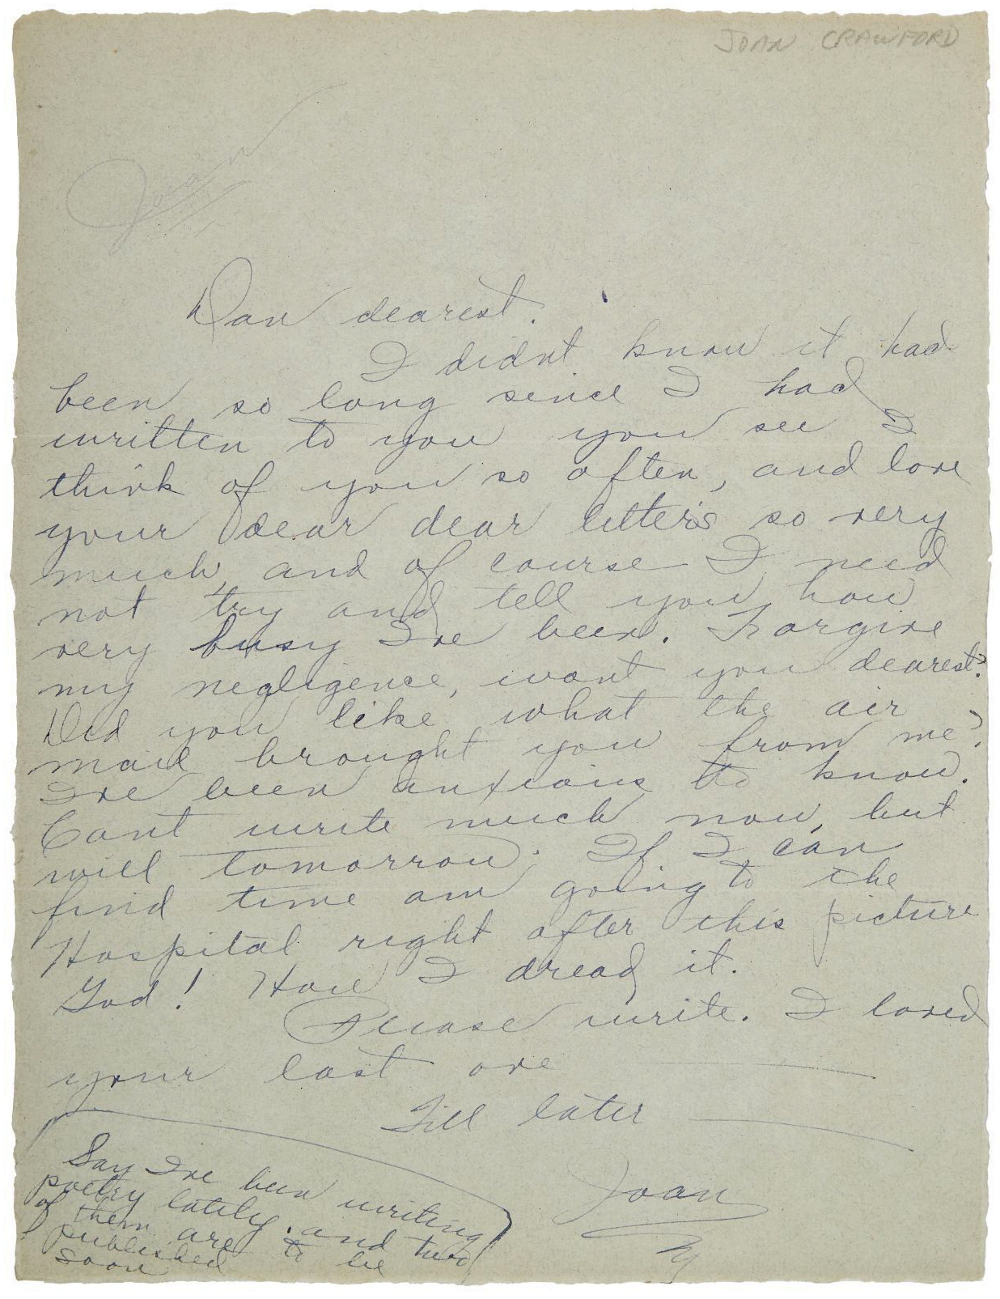 JOAN CRAWFORD
Joan
Dan dearest.
I didnt know it had
been so long since I had
written to you you see I
think of you so often, and love
your dear dear letters so very
much, and of course I need
not try and tell you how
very busy I've been. Forgive
my negligence, wont you dearest?
Did you like what the air
mail brought you from me?
I've been anxious to know.
Cant write much now, but
will tomorrow. If I can
find time am going to the
Hospital right after this picture
God! How I dread it.
Please write. I loved
your last one
Till later
Joan
Say I've been writing
poetry lately. and two
of them are to be
published
soon